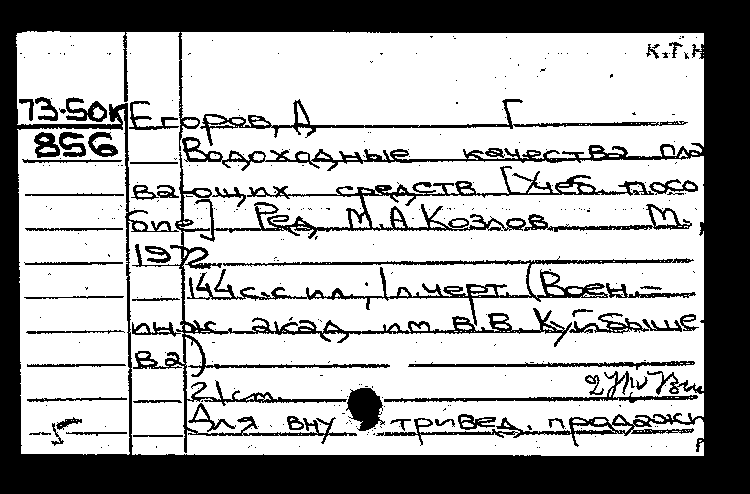 К.Т.Н
73-50К Егоров, Д Г
856 Водоходные качества пла
вающих средств [Учеб. посо
бие]. Ред М.А Козлов М.,
1972
144 с. с ил.; 1 л. черт. (Воен.-
инж. акад им. В.В. Куйбыше-
ва)
21 см.
Для внутривед. продажи